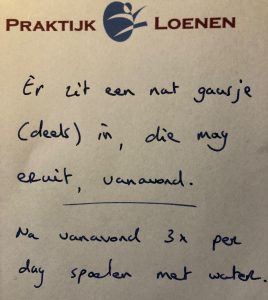 PRAKTIJK LOENEN
Er zit een nat gaasje
(deels) in, die mag
eruit, vanavond.
Na vanavond 3x per
dag spoelen met water.